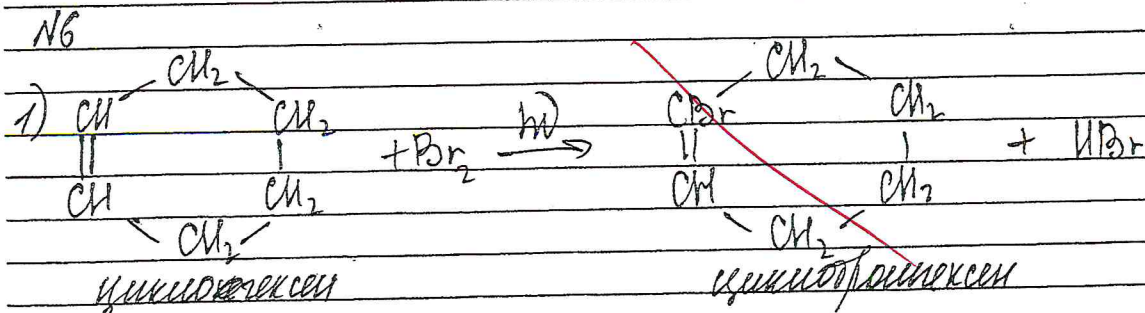 N6
1) CH = CH – CH₂ – CH₂ – CH₂ – CH₂ + Br₂ —hν→ CBr = CH – CH₂ – CH₂ – CH₂ – CH₂ + HBr
циклогексен циклобромгексен